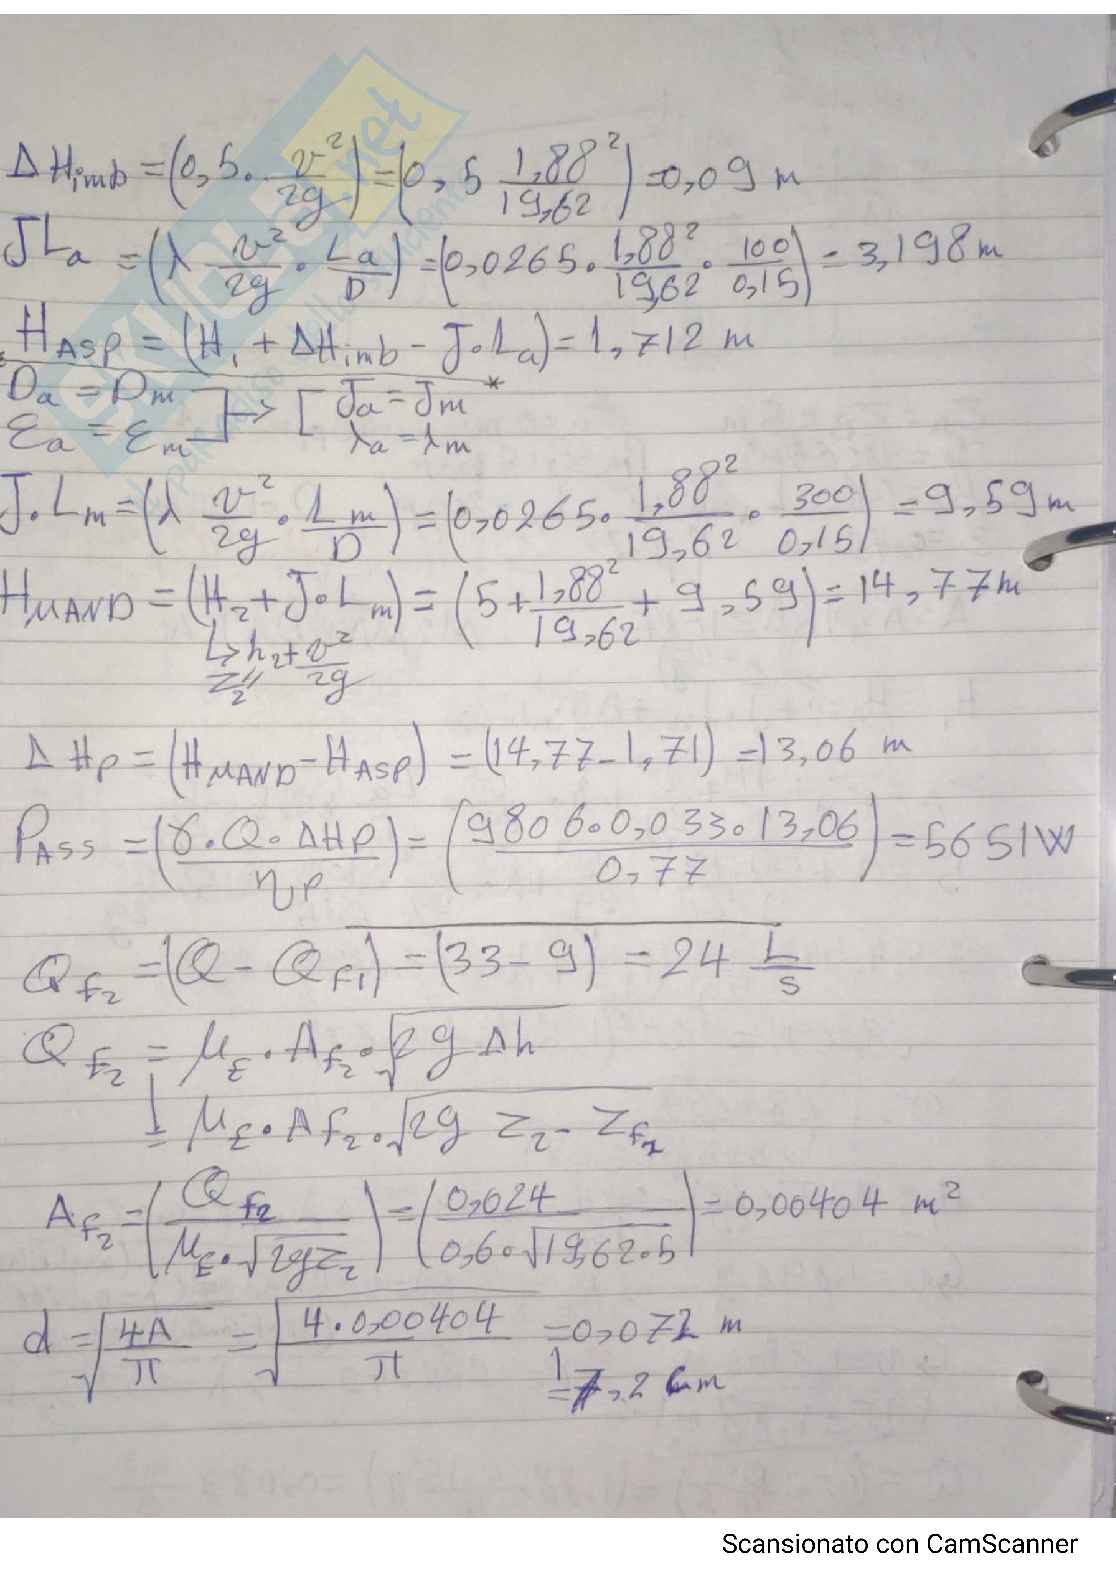 ΔH_imb = (0,5 · v²/2g) = (0,5 1,88²/19,62) = 0,09 m
JLa = (λ v²/2g · La/D) = (0,0265 · 1,88²/19,62 · 100/0,15) = 3,198 m
H_ASP = (H₁ + ΔH_imb - J·La) = 1,712 m
Da = Dm ] → [ Ja = Jm *
εa = εm ] λa = λm
J·Lm = (λ v²/2g · Lm/D) = (0,0265 · 1,88²/19,62 · 300/0,15) = 9,59 m
H_MAND = (H₂ + J·Lm) = (5 + 1,88²/19,62 + 9,59) = 14,77 m
↳ h₂ + v²/2g
z₂
ΔHp = (H_MAND - H_ASP) = (14,77 - 1,71) = 13,06 m
P_ASS = (γ·Q·ΔHp/ηp) = (9806·0,033·13,06/0,77) = 5651 W
Q_f₂ = (Q - Q_f1) = (33 - 9) = 24 L/s
Q_f₂ = μ_ε · A_f₂ · √2gΔh
= μ_ε · A_f₂ · √2g z₂ - z_f₂
A_f₂ = (Q_f₂/μ_ε·√2gz₂) = (0,024/0,6·√19,62·5) = 0,00404 m²
d = √4A/π = √4·0,00404/π = 0,072 m
= 7,2 cm
Scansionato con CamScanner